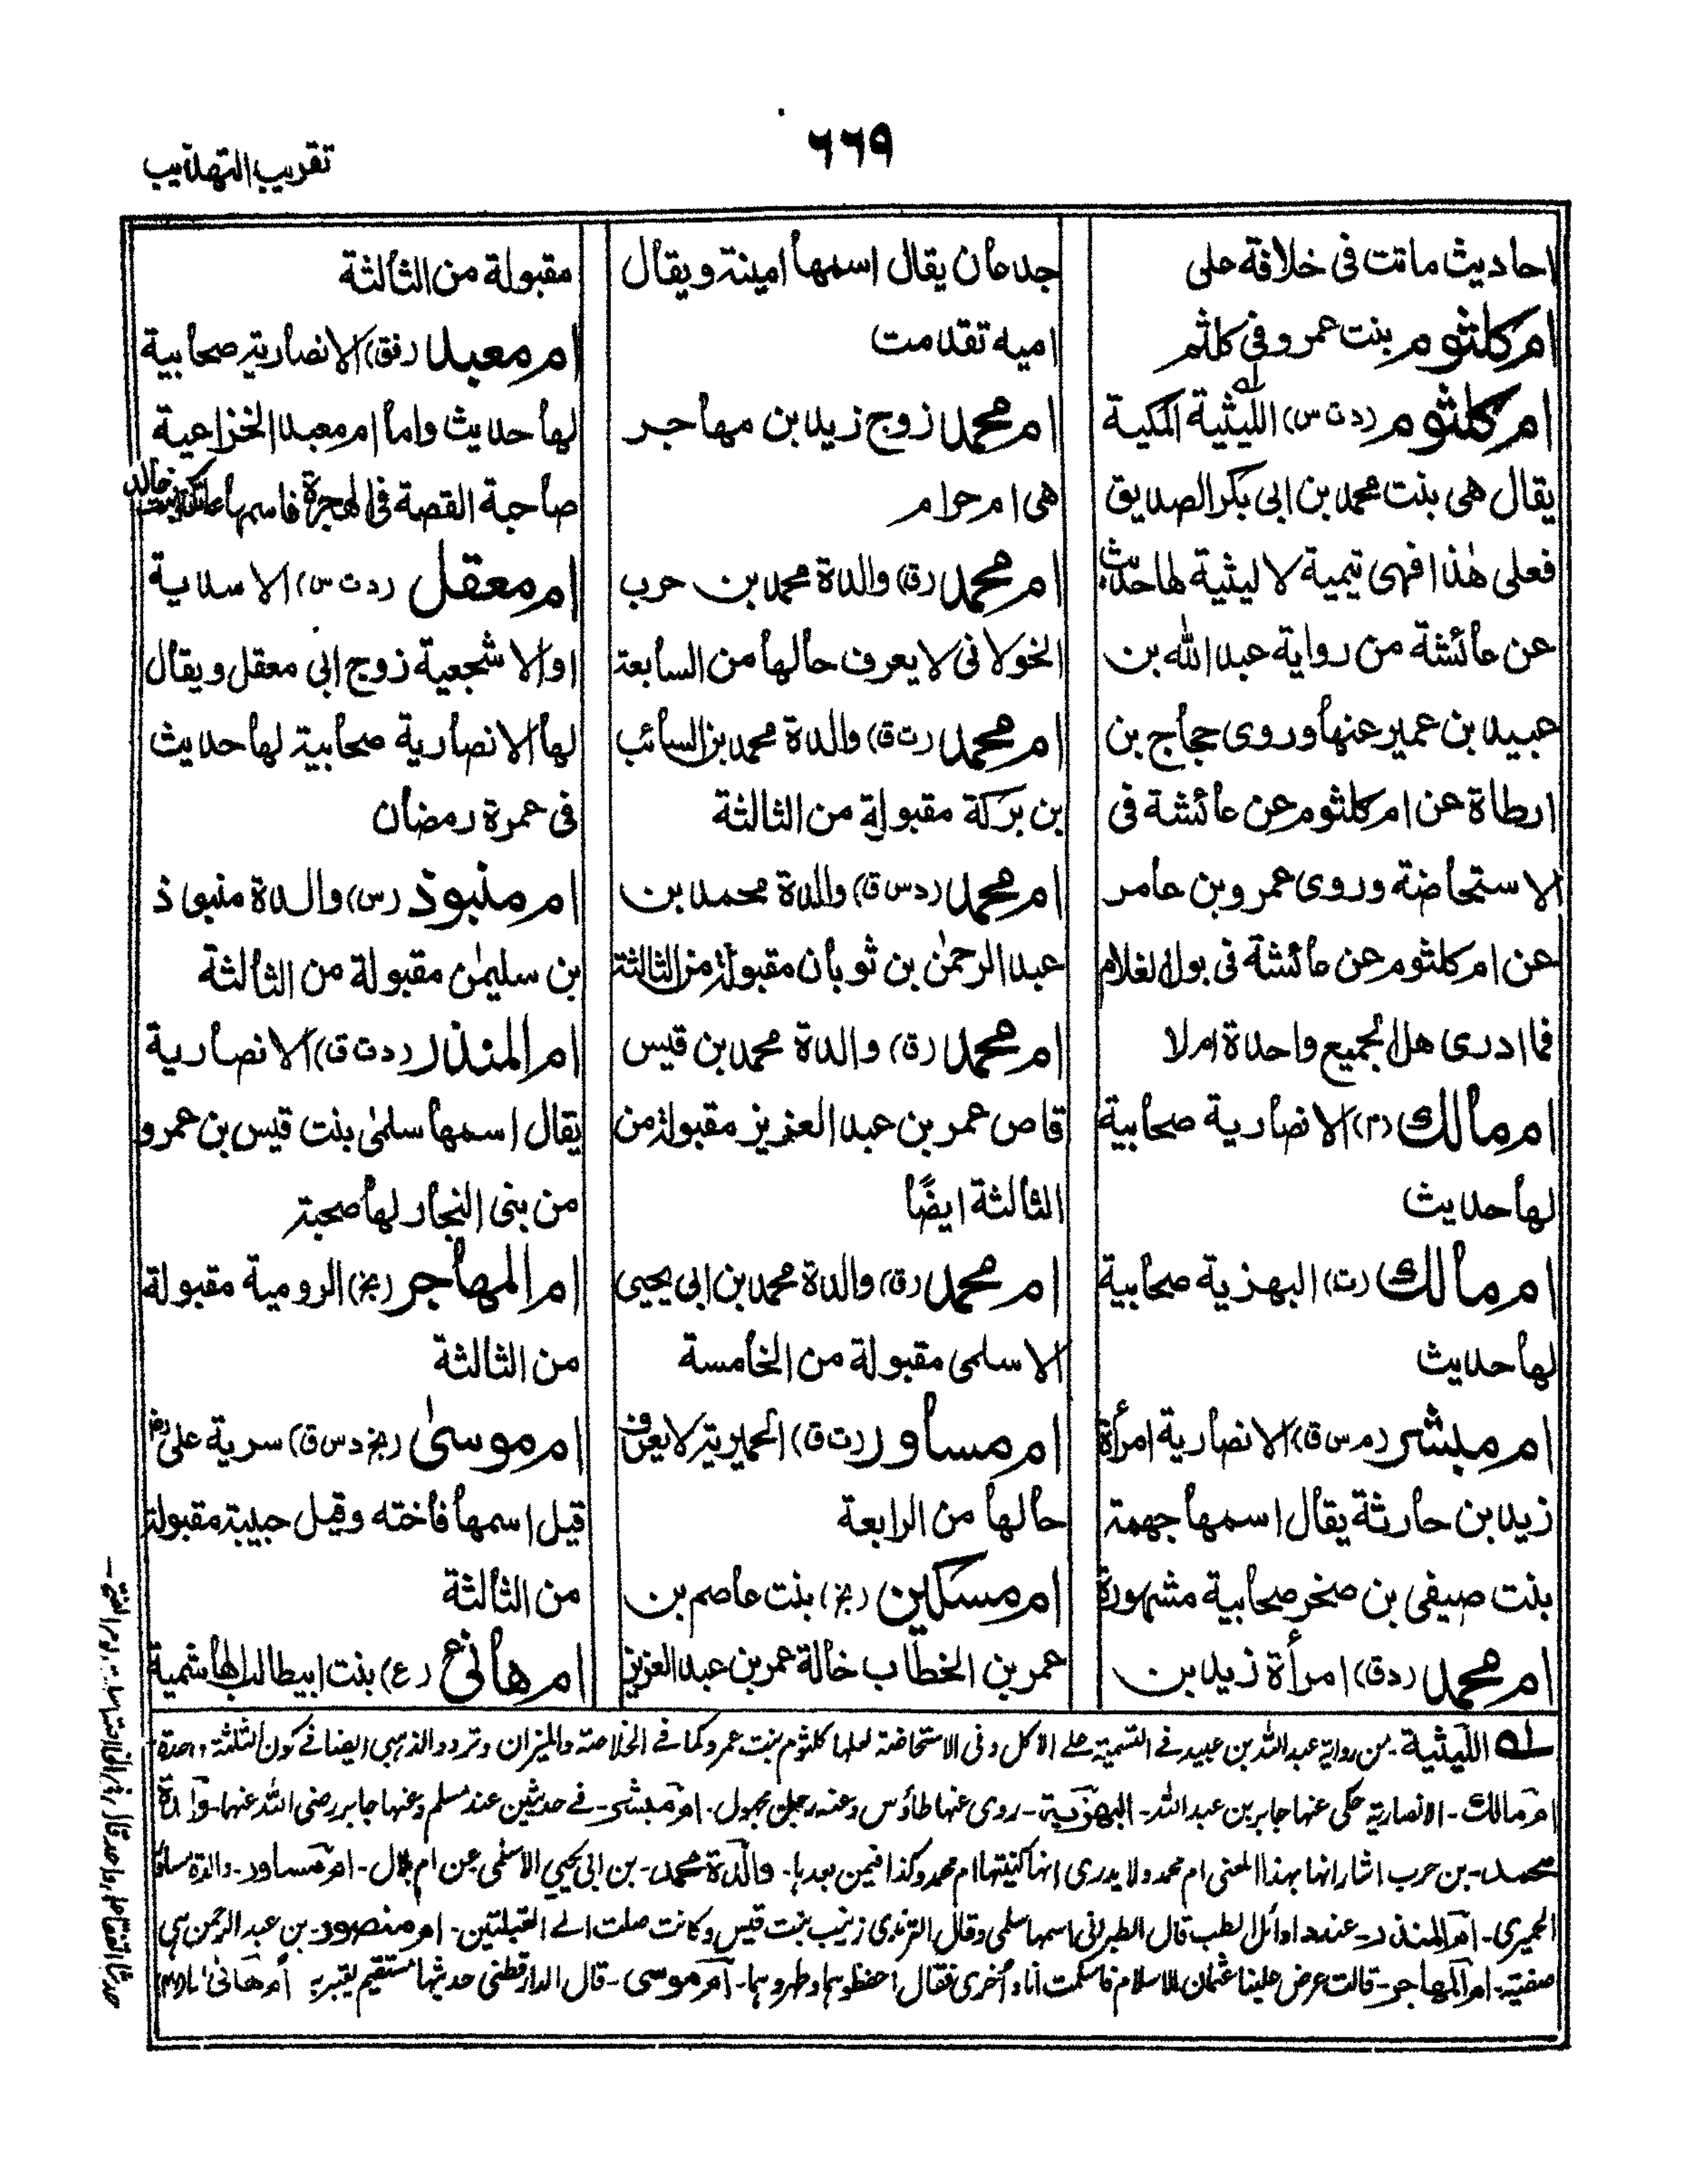 تقريب التهذيب
٦٦٩
احاديث ماتت فى خلافة على
ام كلثوم بنت عمرو فى كلثم
ام كلثوم (د ت س) الليثية المكية
يقال هى بنت محمد بن ابى بكر الصديق
فعلى هٰذا فهى تيمية لا ليثية لها حديث
عن عائشة من رواية عبد الله بن
عبيد بن عمير عنها وروى حجاج بن
ارطاة عن ام كلثوم عن عائشة فى
الاستحاضة وروى عمرو بن عامر
عن ام كلثوم عن عائشة فى بول الغلام
فما ادرى هل الجميع واحدة ام لا
ام مالك (م) الانصارية صحابية
لها حديث
ام مالك (ت) البهزية صحابية
لها حديث
ام مبشر (م س ق) الانصارية امرأة
زيد بن حارثة يقال اسمها جهمة
بنت صيفى بن صخر صحابية مشهورة
ام محمد (د ق) امرأة زيد بن
جدعان يقال اسمها امينة ويقال
امية تقدمت
ام محمد زوج زيد بن مهاجر
هى ام حرام
ام محمد (ق) والدة محمد بن حرب
الخولانى لا يعرف حالها من السابعة
ام محمد (ت ق) والدة محمد بن السائب
بن بركة مقبولة من الثالثة
ام محمد (د س ق) والدة محمد بن
عبد الرحمٰن بن ثوبان مقبولة من الثالثة
ام محمد (ق) والدة محمد بن قيس
قاص عمر بن عبد العزيز مقبولة من
الثالثة ايضًا
ام محمد (ق) والدة محمد بن ابى يحيى
الاسلمى مقبولة من الخامسة
ام مساور (ت ق) الحميرية لا يعرف
حالها من الرابعة
ام مسكين (بخ) بنت عاصم بن
عمر بن الخطاب خالة عمر بن عبد العزيز
مقبولة من الثالثة
ام معبد (فق) الانصارية صحابية
لها حديث واما ام معبد الخزاعية
صاحبة القصة فى الهجرة فاسمها عاتكة بنت خالد
ام معقل (د ت س) الاسدية
او الاشجعية زوج ابى معقل ويقال
لها الانصارية صحابية لها حديث
فى عمرة رمضان
ام منبوذ (س) والدة منبوذ
بن سليمٰن مقبولة من الثالثة
ام المنذر (د ت ق) الانصارية
يقال اسمها سلمٰى بنت قيس بن عمرو
من بنى النجار لها صحبة
ام المهاجر (بخ) الرومية مقبولة
من الثالثة
ام موسىٰ (بخ د س ق) سرية على رض
قيل اسمها فاخته وقيل حبيبة مقبولة
من الثالثة
ام هانئ (ع) بنت ابيطالب الهاشمية
له الليثية - من رواية عبد الله بن عبيد فے التسمية على الاكل وفى الاستحاضة لعلها كلثوم بنت عمرو كما فے الخلاصة والميزان وتردد الذهبى ايضا فے كون الثلثة واحدة
ام مالك - الانصارية حكى عنها جابر بن عبد الله - البهزية - روى عنها طاؤس وعنه رجل مجهول - ام مبشر - فے حديثين عند مسلم وعنها جابر رضى الله عنها - والدة
محمد - بن حرب اشار انها بهذا المعنى ام محمد ولا يدرى انها كنيتها ام محمد وكذا فيمن بعدها - والدة محمد - بن ابى يحيى الاسلمى عن ام بلال - ام مساور - والدة مساور
الحميرى - ام المنذر - عند د اوائل الطب قال الطبرانى اسمها سلمى وقال الترمذى زينب بنت قيس وكانت صلت الے القبلتين - ام منصور - بن عبد الرحمن هى
صفية - ام المهاجر - قالت عرض علينا عثمان الاسلام فاسلمت انا واخرى فقال احفظوهما وطهروهما - ام موسى - قال الدارقطنى حديثها مستقيم يعتبر به ام هانئ